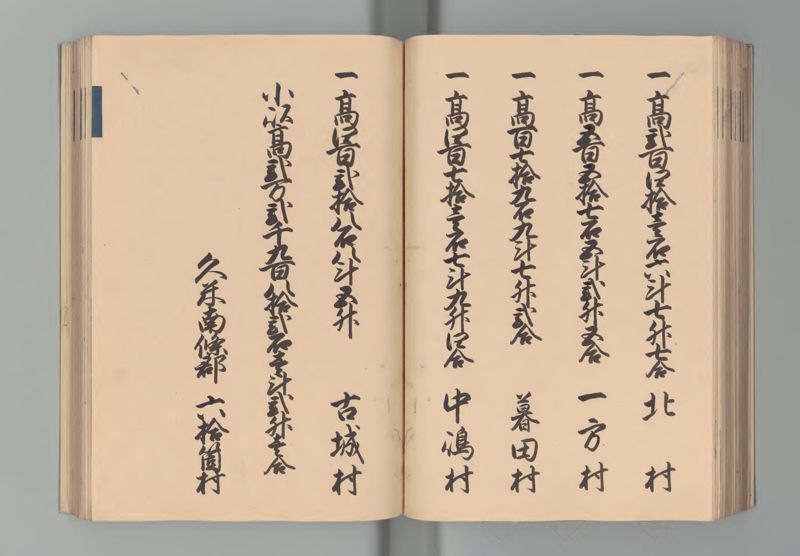 一 髙弐百四拾壱石六斗七升七合 北村
一 髙五百五拾七石五斗弐升五合 一方村
一 髙百七拾九石九斗七升弐合 暮田村
一 髙四百七拾壱石七斗九升四合 中嶋村
一 髙四百弐拾八石八斗五升 古城村
小以髙弐万弐千九百八拾弐石壱斗弐升壱合
久米南條郡 六拾箇村